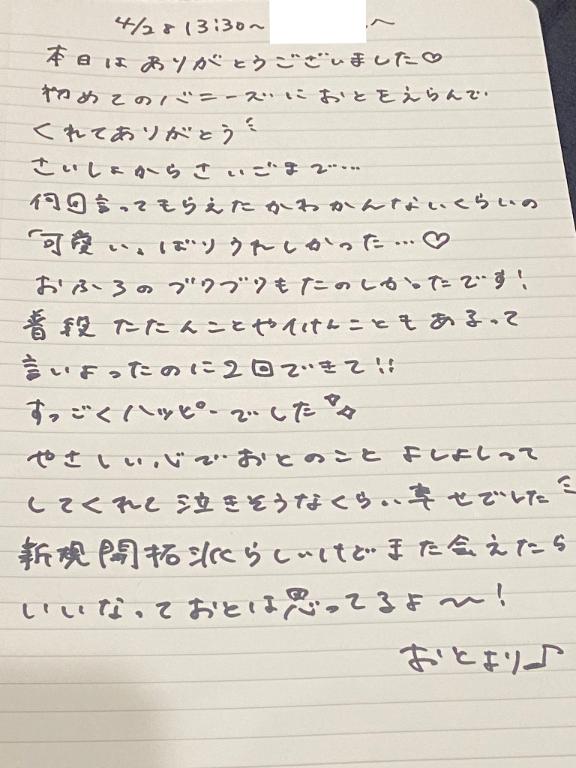 4/28 13:30〜 〜
本日はありがとうございました♡
初めてのバニーズにおとをえらんで
くれてありがとう
さいしょからさいごまで…
何回言ってもらえたかわかんないくらいの
「可愛い」ばりうれしかった…♡
おふろのブクブクもたのしかったです!
普段たたんことやイけんこともあるって
言いよったのに2回できて!!
すっごくハッピーでした✧✧
やさしい心でおとのことよしよしって
してくれて泣きそうなくらい幸せでした
新規開拓派らしいけどまた会えたら
いいなっておとは思ってるよ〜!
おとより♪